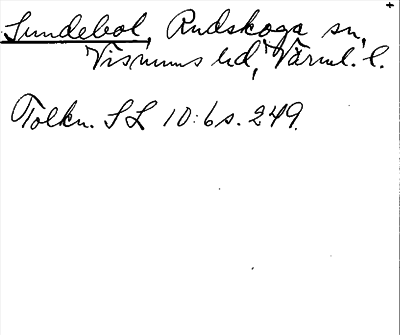 Sundebol, Rudskoga sn,
Visnums hd, Värml. l.
Tolkn. SL 10:6 s. 249.